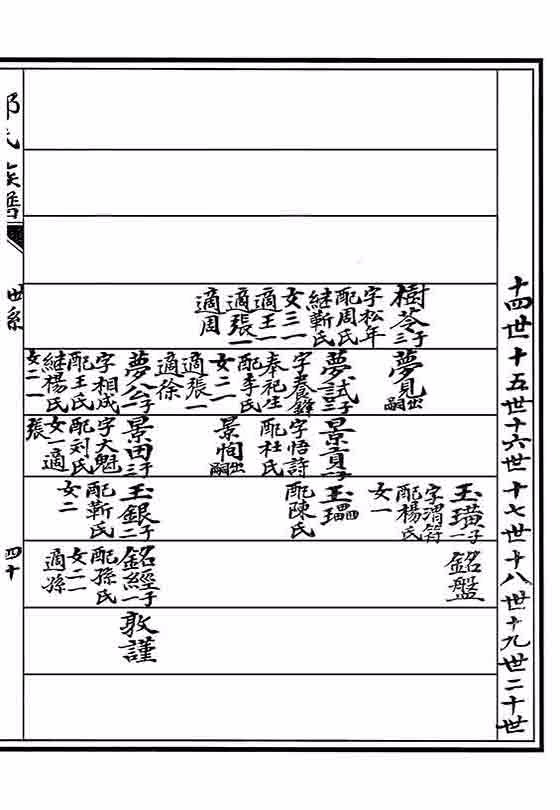 十四世十五世十六世十七世十八世十九世二十世
樹苓三子
字松年
配周氏
継靳氏
女三一
適王一
適張一
適周
夢見出嗣
夢試三子
字養鋒
奉祀生
配李氏
女二一
適張一
適徐
夢公一子
字相成
配王氏
継楊氏
女二一
景貢三子
字悟詩
配杜氏
景恂出嗣
景田三子
字大魁
配刘氏
女一適
張
玉璜一子
字渭符
配楊氏
女一
玉
配陳氏
玉銀二子
配靳氏
女二
銘盤
銘經一子
配孫氏
女二一
適孫
敦謹
氏族譜
世系
四十